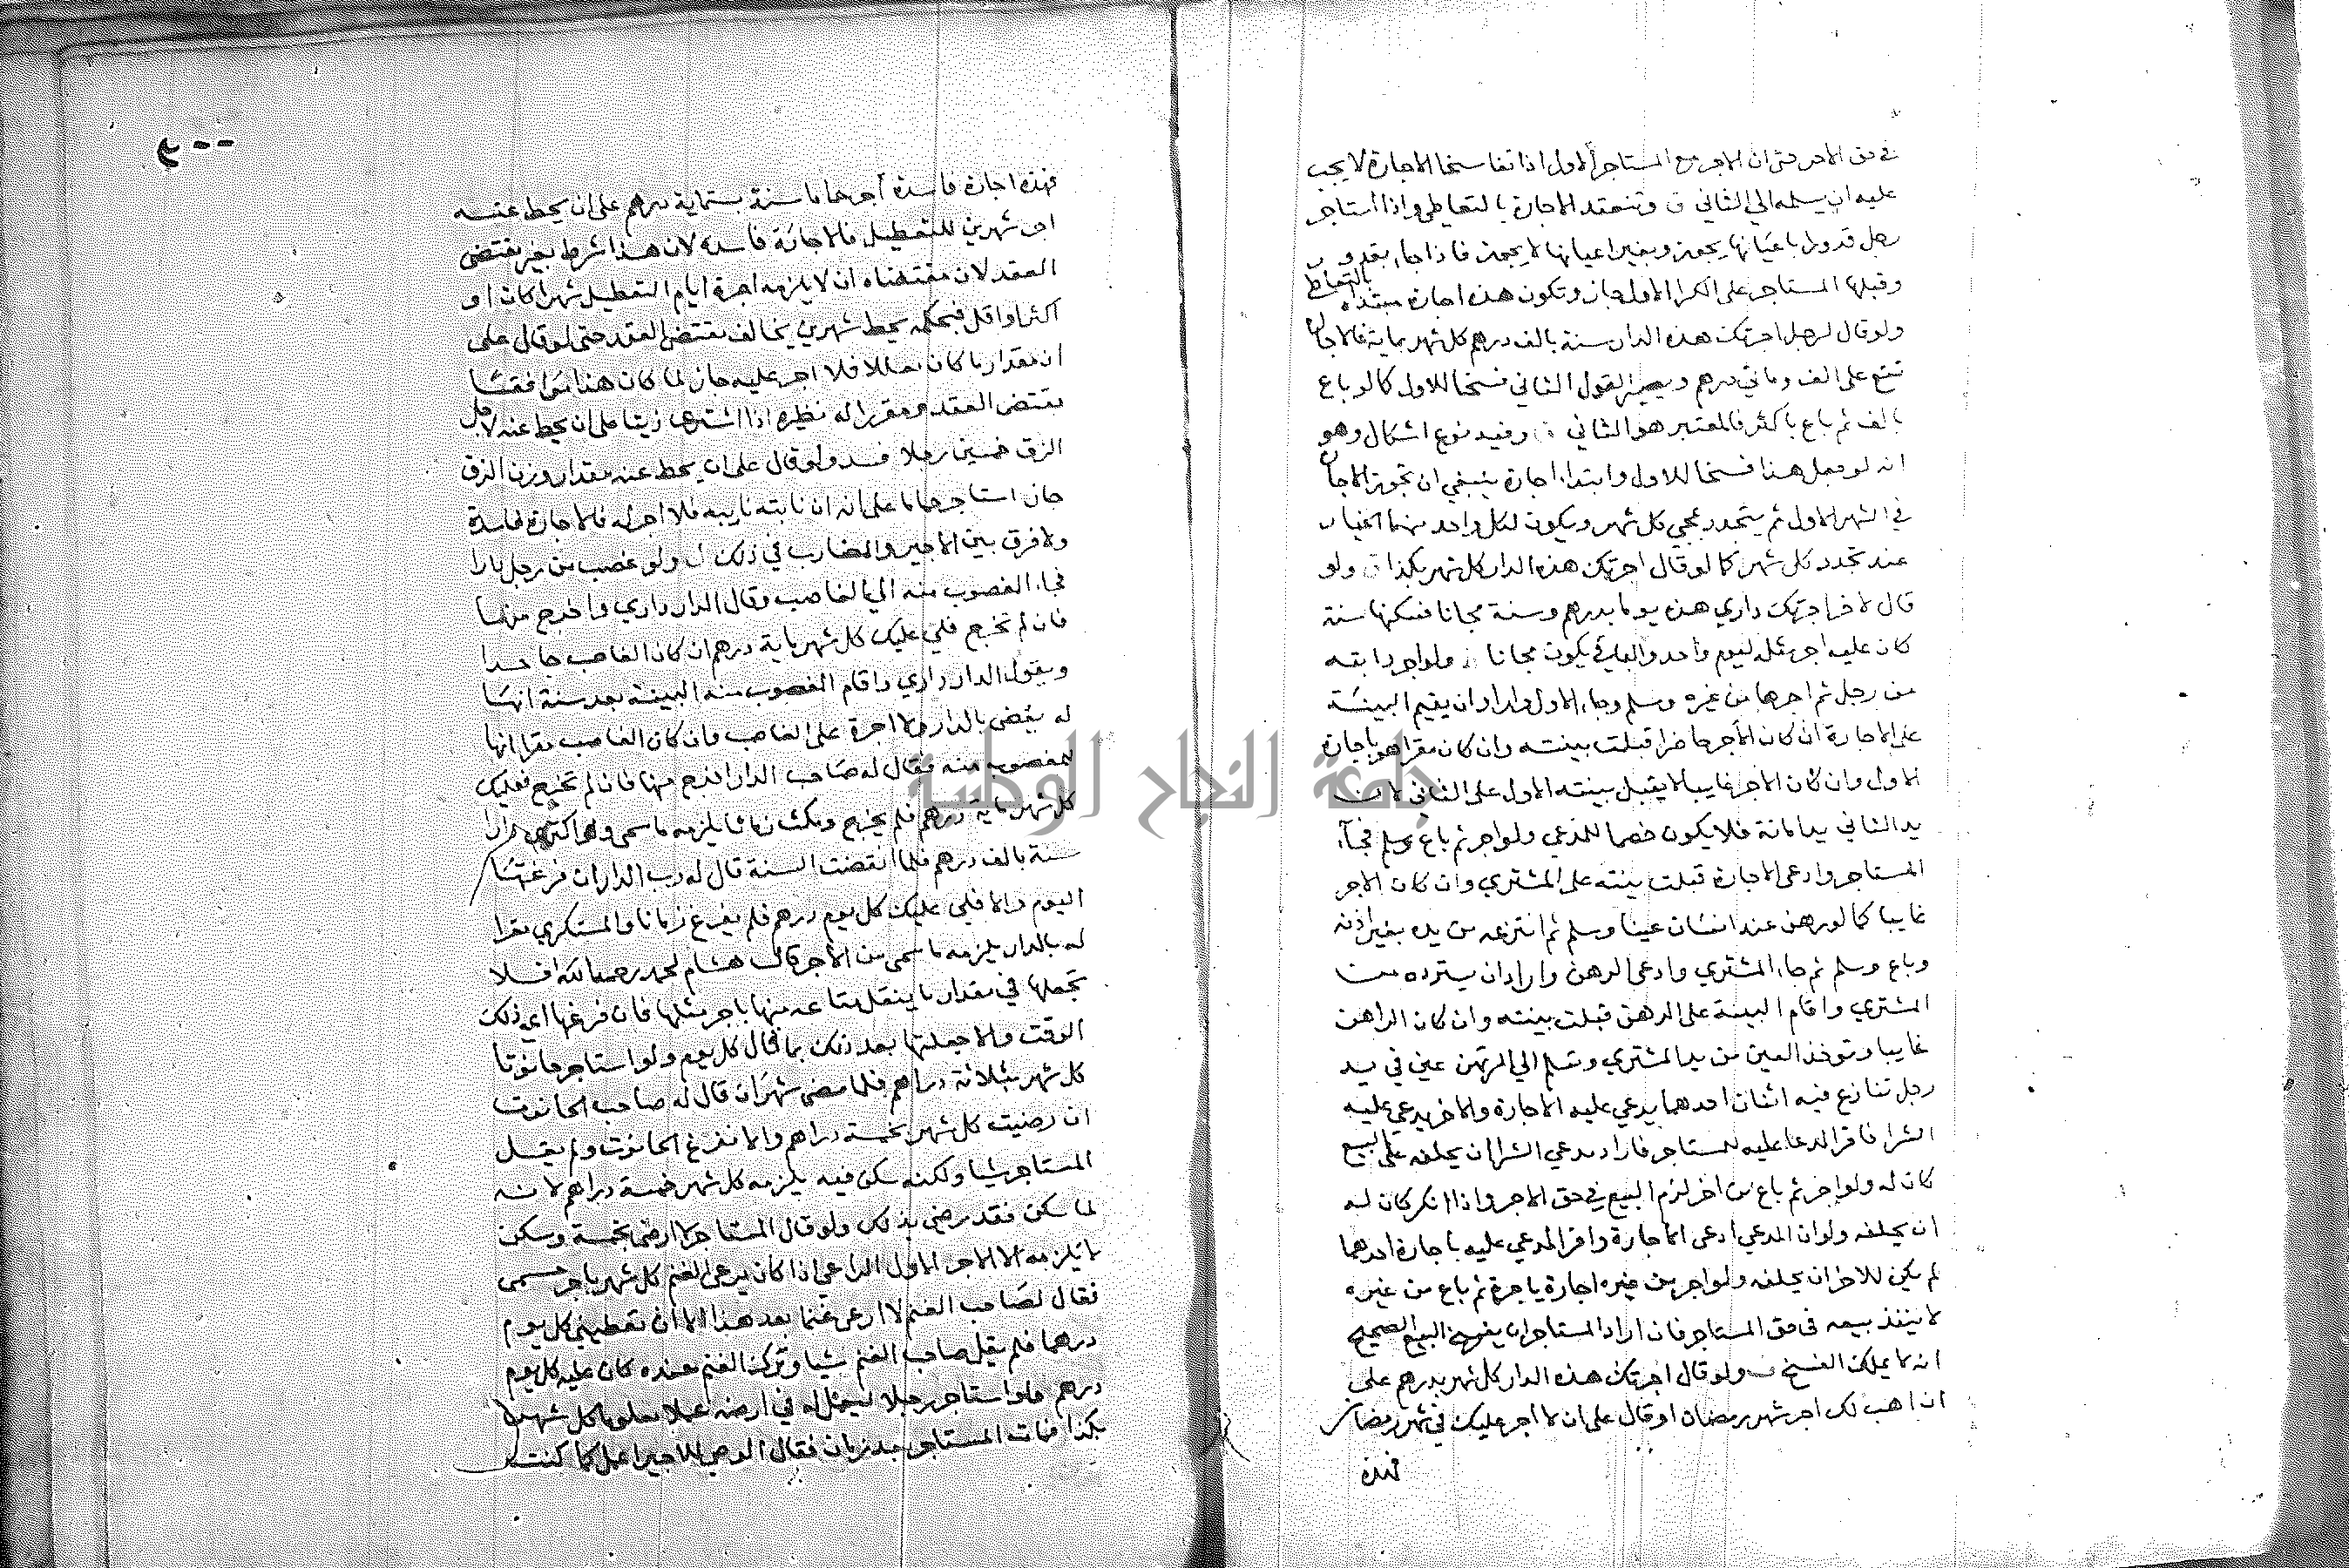 في حق الاجر حتى ان الاجر مع المستاجر الاول اذا تفاسخا الاجارة لا يجب
عليه ان يسلمه الي الثاني ق وتنعقد الاجارة بالتعاطي واذا استاجر
رجل قدورا باعيانها يجوز وبغير اعيانها لا يجوز فاذا جاء بقدور
وقبلها المستاجر على الكرا الاول جاز وتكون هذه اجارة مبتداه بالتعاطي
ولو قال لرجل اجرتك هذه الدار سنة بالف درهم كل شهر بماية فالاجارة
تقع على الف وماتي درهم ويصير القول الثاني فسخا للاول كما لو باع
بالف ثم باع باكثر فالمعتبر هو الثاني وفيه نوع اشكال وهو
انه لو جعل هذا فسخا للاول وابتداء اجارة ينبغي ان تجوز الاجارة
في الشهر الاول ثم يتجدد بمجي كل شهر ويكون لكل واحد منهما الخيار
عند تجدد كل شهر كما لو قال اجرتك هذه الدار كل شهر بكذا ق ولو
قال لاخر اجرتك داري هذه يوما بدرهم وسنة مجانا فسكنها سنة
كان عليه اجر مثله ليوم واحد والباقي يكون مجانا ولو اجر دابته
من رجل ثم اجرها من غيره وسلم وجاء الاول واراد ان يقيم البينة
على الاجارة ان كان الاجر حاضرا قبلت بينته وان كان مقرا هو باجارة
الاول وان كان الاجر غايبا لا يقبل بينته الاول على الثاني لان
يد الثاني يد امانة فلا يكون خصما للمدعي ولو اجر ثم باع وسلم فجاء
المستاجر وادعى الاجارة قبلت بينته على المشتري وان كان الاجر
غايبا كما لو رهن عند انسان عينا وسلم ثم انتزعه من يده بغير اذنه
وباع وسلم ثم جاء المشتري وادعى الرهن واراد ان يسترده من
المشتري واقام البينة على الرهن قبلت بينته وان كان الراهن
غايبا وتوخذ العين من يد المشتري وتسلم الي المرتهن عين في يد
رجل تنازع فيه اثنان احدهما يدعي عليه الاجارة والاخر يدعي عليه
الشرا فاقر المدعا عليه للمستاجر فاراد مدعي الشرا ان يحلفه على البيع
كان له ولو اجر ثم باع من اخر لزم البيع في حق الاجر واذا انكر كان له
ان يحلفه ولو ان المدعي ادعى الاجارة واقر المدعي عليه باجارة احدهما
لم يكن للاخر ان يحلفه ولو اجر من غيره اجارة باجرة ثم باع من غيره
لا ينفذ بيعه في حق المستاجر فان اراد المستاجر ان يفسخ البيع الصحيح
انه لا يملك الفسخ ولو قال اجرتك هذه الدار كل شهر بدرهم على
ان اهب لك اجر شهر رمضان او قال على ان لا اجر عليك في شهر رمضان
فهذه
فهذه اجارة فاسدة اجر حماما سنة بستماية درهم على ان يحط عنه
اجر شهرين للتعطيل فالاجارة فاسدة لان هذا شرط بغير مقتضى
العقد لان مقتضاه ان لا يلزمه اجرة ايام التعطيل شهرا كان او
اكثر او اقل فبحكمه يحط شهرين يخالف مقتضى العقد حتى لو قال على
ان مقدار ما كان معطلا فلا اجر عليه جاز لما كان هذا موافقا
مقتضى العقد ومقررا له نظيره اذا اشترى زيتا على ان يحط عنه لاجل
الزق خمسين رطلا فسد ولو قال على ان يحط عنه مقدار وزن الزق
جاز استاجر حماما على انه ان نابته نايبه فلا اجر له فالاجارة فاسدة
ولا فرق بين الاجير والمضارب في ذلك ولو غصب من رجل دارا
فجاء المغصوب منه الي الغاصب وقال الدار داري واخرج منها
فان لم تخرج فلي عليك كل شهر ماية درهم ان كان الغاصب جاحدا
ويقول الدار داري واقام المغصوب منه البينة بعد سنة انها
له يقضى بالدار ولا اجرة على الغاصب وان كان الغاصب مقرا انها
للمغصوب منه فقال له صاحب الدار اخرج منها فان لم تخرج فعليك
كل شهر ماية درهم فلم يخرج ومكث زمانا يلزمه ما سمى ولو اكترى دارا
سنة بالف درهم فلما انقضت السنة قال له رب الدار ان فرغتها
اليوم والا فلي عليك كل يوم درهم فلم يفرغ زمانا والمستكري مقرا
له بالدار يلزمه ما سمى من الاجر قال هشام لمحمد رحمهما الله افلا
تجعلها في مقدار ما ينقل متاعه منها باجر مثلها فان فرغها الي ذلك
الوقت والا جعلتها بعد ذلك بما قال كل يوم ولو استاجر حانوتا
كل شهر بثلاثة دراهم فلما مضى شهران قال له صاحب الحانوت
ان رضيت كل شهر بخمسة دراهم والا فافرغ الحانوت ولم يقل
المستاجر شيا ولكنه سكن فيه يلزمه كل شهر خمسة دراهم لانه
لما سكن فقد رضي بذلك ولو قال المستاجر لا ارضى بخمسة وسكن
لا يلزمه الا الاجر الاول الراعي اذا كان يرعى الغنم كل شهر باجر مسمى
فقال لصاحب الغنم لا ارعى غنما بعد هذا الا ان تعطيني كل يوم
درهما فلم يقل صاحب الغنم شيا وترك الغنم عنده كان عليه كل يوم
درهم ولو استاجر رجلا ليعمل له في ارضه عملا معلوما كل شهر
بكذا فمات المستاجر بعد زمان فقال الوصي للاجير اعمل كما كنت
جامعة النجاح الوطنية